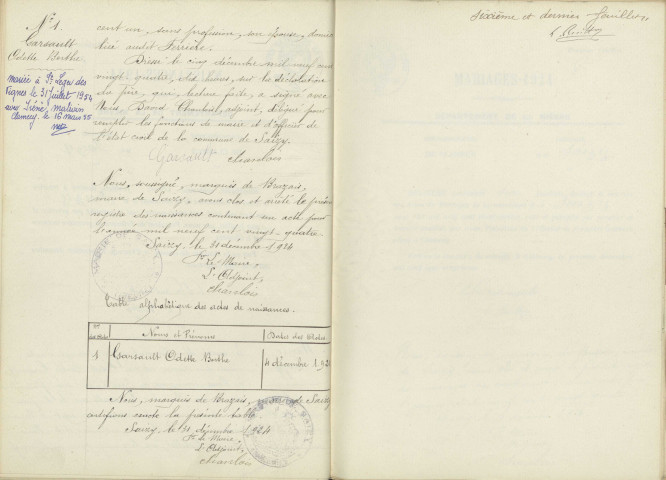 N° 1.
Garsault
Odette Berthe
mariée à St Léger des
Vignes le 31 juillet 1954
avec Iréné,
le 16 mars
cent un, sans profession, son épouse, domici
liée audit Ferrière.
Dressé le cinq décembre mil neuf cent
vingt-quatre, heures, sur la déclaration
du père, qui, lecture faite, a signé avec
Nous, Chandois, adjoint, délégué pour
remplir les fonctions de maire et d'officier de
l'état civil de la commune de Saizy.
Garsault
Chandois
Nous, soussigné, marquis de
maire de Saizy, avons clos et arrêté le présent
registre des naissances contenant un acte pour
l'année mil neuf cent vingt-quatre
Saizy, le 31 décembre 1924
Pr Le Maire,
L'Adjoint,
Chandois
Table alphabétique des actes de naissances.
Noms et Prénoms
Dates des Actes
1 Garsault Odette Berthe
4 décembre 192
Nous, marquis de maire de Saizy
certifions exacte la présente table.
Saizy, le 31 décembre 1924
Pr le Maire,
L'Adjoint,
Chandois
Sixième et dernier feuillet